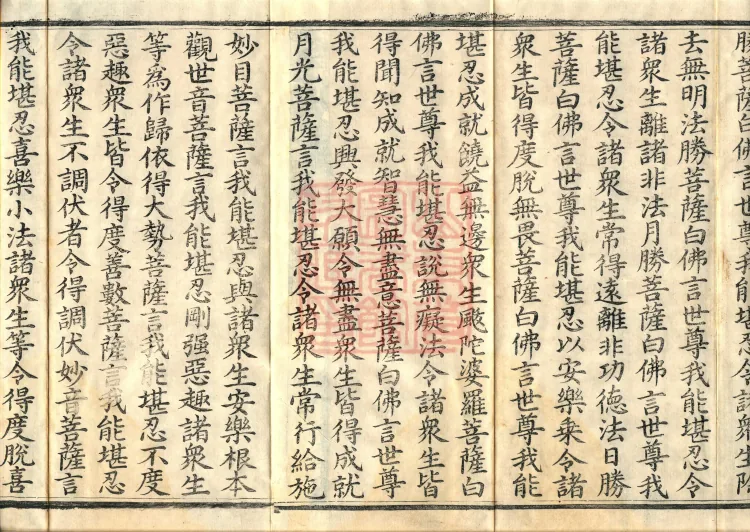 勝菩薩白佛言世尊我能堪忍令諸眾生除
去無明法勝菩薩白佛言世尊我能堪忍令
諸眾生離諸非法月勝菩薩白佛言世尊我
能堪忍令諸眾生常得遠離非功德法日勝
菩薩白佛言世尊我能堪忍以安樂乘令諸
眾生皆得度脫無畏菩薩白佛言世尊我能
堪忍成就饒益無邊眾生颰陀婆羅菩薩白
佛言世尊我能堪忍說無癡法令諸眾生皆
得聞知成就智慧無盡意菩薩白佛言世尊
我能堪忍興發大願令無盡眾生皆得成就
月光菩薩言我能堪忍令諸眾生常行給施
妙目菩薩言我能堪忍與諸眾生安樂根本
觀世音菩薩言我能堪忍剛强惡趣諸眾生
等為作歸依得大勢菩薩言我能堪忍不度
惡趣眾生皆令得度善數菩薩言我能堪忍
令諸眾生不調伏者令得調伏妙音菩薩言
我能堪忍喜樂小法諸眾生等令得度脫喜